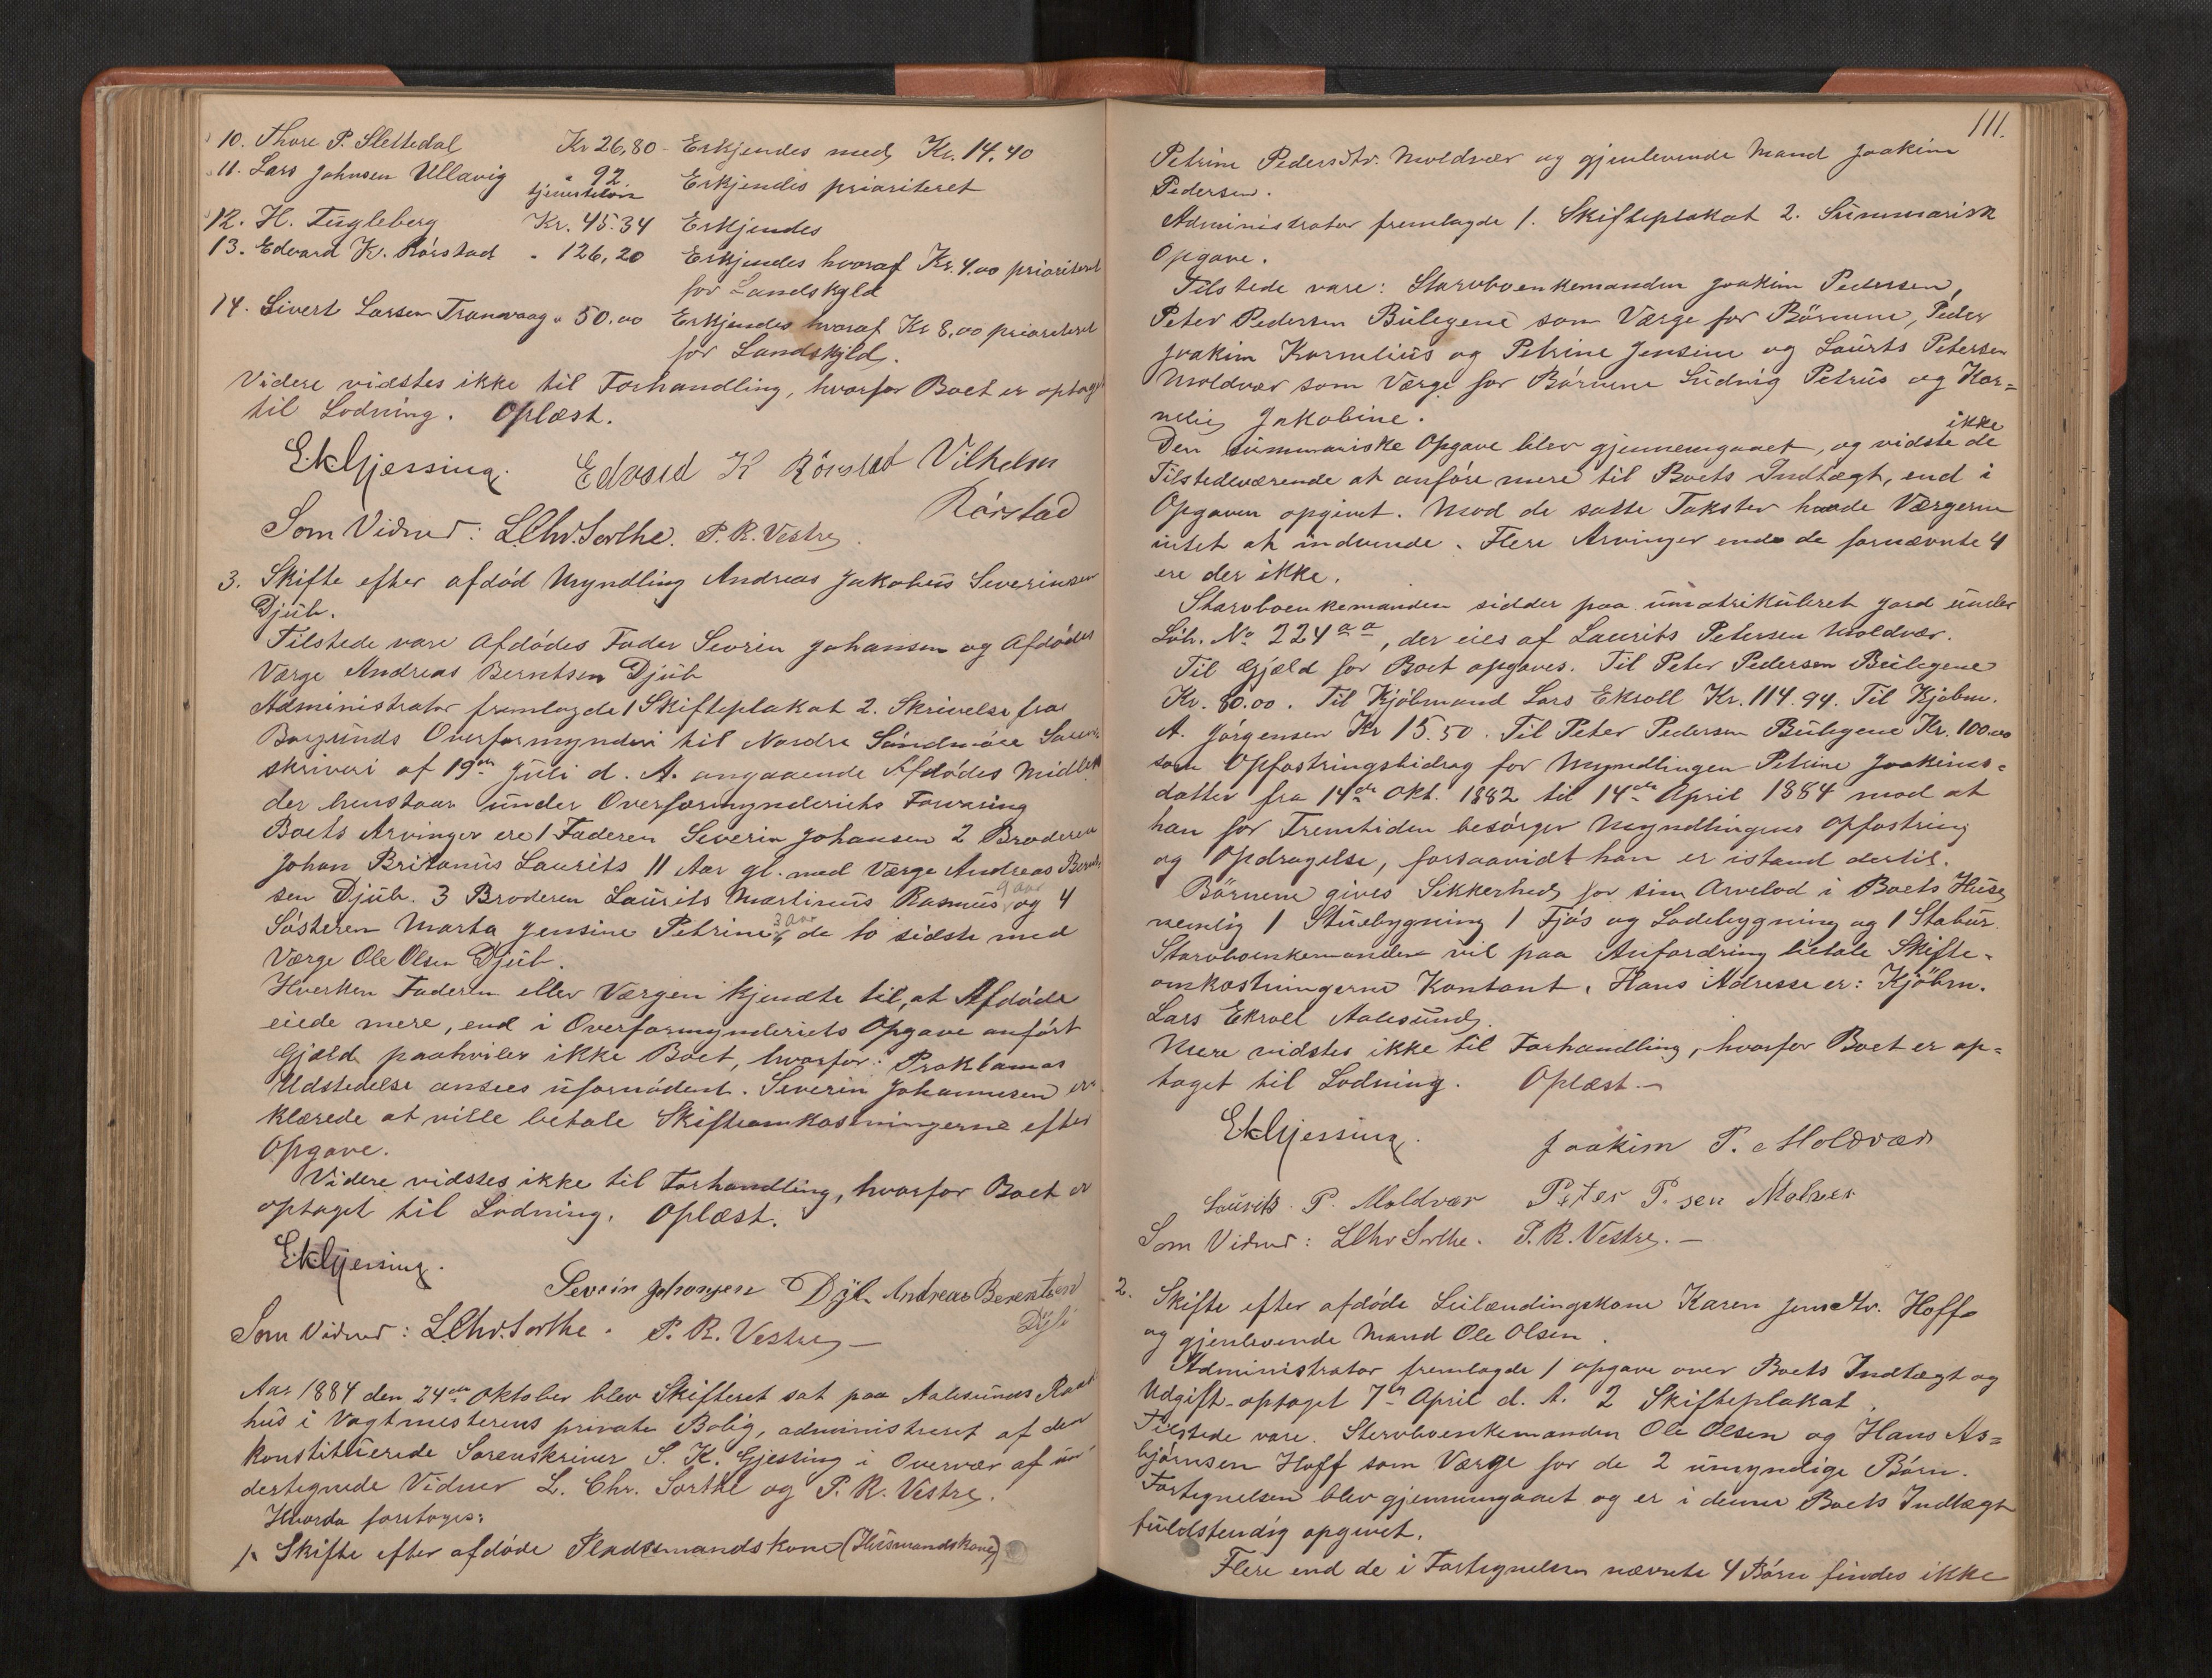 10. Thore P. Slettedal Kr 26,80 - Erkjendes med Kr. 14,40
11. Lars Johnsen Ullavig " 92 Erkjendes prioriteret
tjenerløn
12. H. Fugleberg Kr. 45.34 Erkjendes
13. Edvard K. Rørstad " 126,20 Erkjendes hvoraf Kr. 4.00 prioriteret
for Landskyld
14. Sivert Larsen Tranvaag " 50.00 Erkjendes hvoraf Kr 8,00 prioriteret
for Landskyld.
Videre vidstes ikke til Forhandling, hvorfor Boet er optaget
til Lodning. Oplæst.
EkGjessing. Edvard K Rörstad Vilhelm
Rørstad
Som Vidner: LChr.Sorthe. P. R. Vestre.
3. Skifte efter afdød Myndling Andreas Jakobus Severinsen
Djub.
Tilstede vare Afdødes Fader Sevrin Johansen og Afdødes
Værge Andreas Berntsen Djub
Administrator fremlagde 1 Skifteplakat 2. Skrivelse fra
Borgunds Overformynderi til Nordre Søndmøre Soren-
skriveri af 19de Juli d. A. angaaende Afdødes Midler
der henstaar under Overformynderiets Forvaring
Boets Arvinger ere 1 Faderen Severin Johansen 2 Broderen
Johan Britanus Laurits 11 Aar gl. med Værge Andreas Bernt-
sen Djub. 3 Broderen Laurits Martinus Rasmus 9 aar og 4
Søsteren Marta Jensine Petrine 3 Aar, de to sidste med
Værge Ole Olsen Djub.
Hverken Faderen eller Værgen kjendte til, at Afdøde
eiede mere, end i Overformynderiets Opgave anført
Gjæld paahviler ikke Boet, hvorfor Proklamas
Udstedelse ansees ufornødent. Severin Johannesen er-
klærede at ville betale Skifteomkostningerne efter
Opgave.
Videre vidstes ikke til Forhandling, hvorfor Boet er
optaget til Lodning. Oplæst.
EkGjessing.
Sevrin Johansen Djub Andreas Berentsen
Djub
Som Vidner: LChr.Sorthe. P. R. Vestre —
Aar 1884 den 24de Oktober blev Skifteret sat paa Aalesunds Raad-
hus i Vagtmesterens private Bolig, administreret af den
konstituerede Sorenskriver S. K. Gjessing i Overvær af un-
dertegnede Vidner L. Chr. Sorthe og P. R. Vestre.
Hvorda foretoges:
1. Skifte efter afdøde Pladsmandskone (Husmandskone)
111.
Petrine Pedersdtr. Moldvær og gjenlevende Mand Joakim
Pedersen.
Administrator fremlagde 1. Skifteplakat 2. Summarisk
Opgave.
Tilstede vare: Stervboenkemanden Joakim Pedersen,
Peter Pedersen Bulegene som Værge for Børnene, Peder
Joakim Kornelius og Petrine Jensine og Laurts Petersen
Moldvær som Værge for Børnene Ludvig Petrus og Kor=
nelie Jakobine.
Den summariske Opgave blev gjennemgaaet, og vidste de ikke
Tilstedeværende at anføre mere til Boets Indtægt, end i
Opgaven opgivet. Mod de satte Takster havde Værgerne
intet at indvende. Flere Arvinger end de fornævnte 4
ere der ikke.
Stervboenkemanden sidder paa umatrikuleret Jord under
Löb. No 224 a a, der eies af Laurits Petersen Moldvær.
Til Gjæld for Boet opgaves. Til Peter Pedersen Bulegene
Kr. 80.00. Til Kjøbmand Lars Ekroll Kr. 114.94. Til Kjøbm.
A. Jørgensen Kr 15.50. Til Peter Pedersen Bulegene Kr. 100.00
som Opfostringsbidrag for Myndlingen Petrine Joakims=
datter fra 14de Okt. 1882 til 14de April 1884 mod at
han for Fremtiden besørger Myndlingens Opfostring
og Opdragelse, forsaavidt han er istand dertil.
Børnene gives Sikkerhed for sin Arvelod i Boets Huse
nemlig 1 Stuebygning 1 Fjøs og Ladebygning og 1 Stabur.
Stervboenkemanden vil paa Anfordring betale Skifte-
omkostningerne Kontant. Hans Adresse er: Kjøbm.
Lars Ekroll Aalesund.
Mere vidstes ikke til Forhandling, hvorfor Boet er op=
taget til Lodning. Oplæst. —
EkGjessing. Joakim P. Moldvær
Laurits P. Moldvær Peter P. sen Molvær
Som Vidner: LChr Sorthe. P. R. Vestre. —
2. Skifte efter afdøde Leilændingskone Karen Jensdtr. Hoff
og gjenlevende Mand Ole Olsen.
Administrator fremlagde 1 Opgave over Boets Indtægt og
Udgift optaget 7de April d. A. 2 Skifteplakat.
Tilstede vare. Stervboenkemanden Ole Olsen og Hans As=
bjørnsen Hoff som Værge for de 2 umyndige Børn.
Fortegnelsen blev gjennemgaaet og er i denne Boets Indtægt
fuldstendig opgivet.
Flere end de i Fortegnelsen nævnte 4 Børn findes ikke